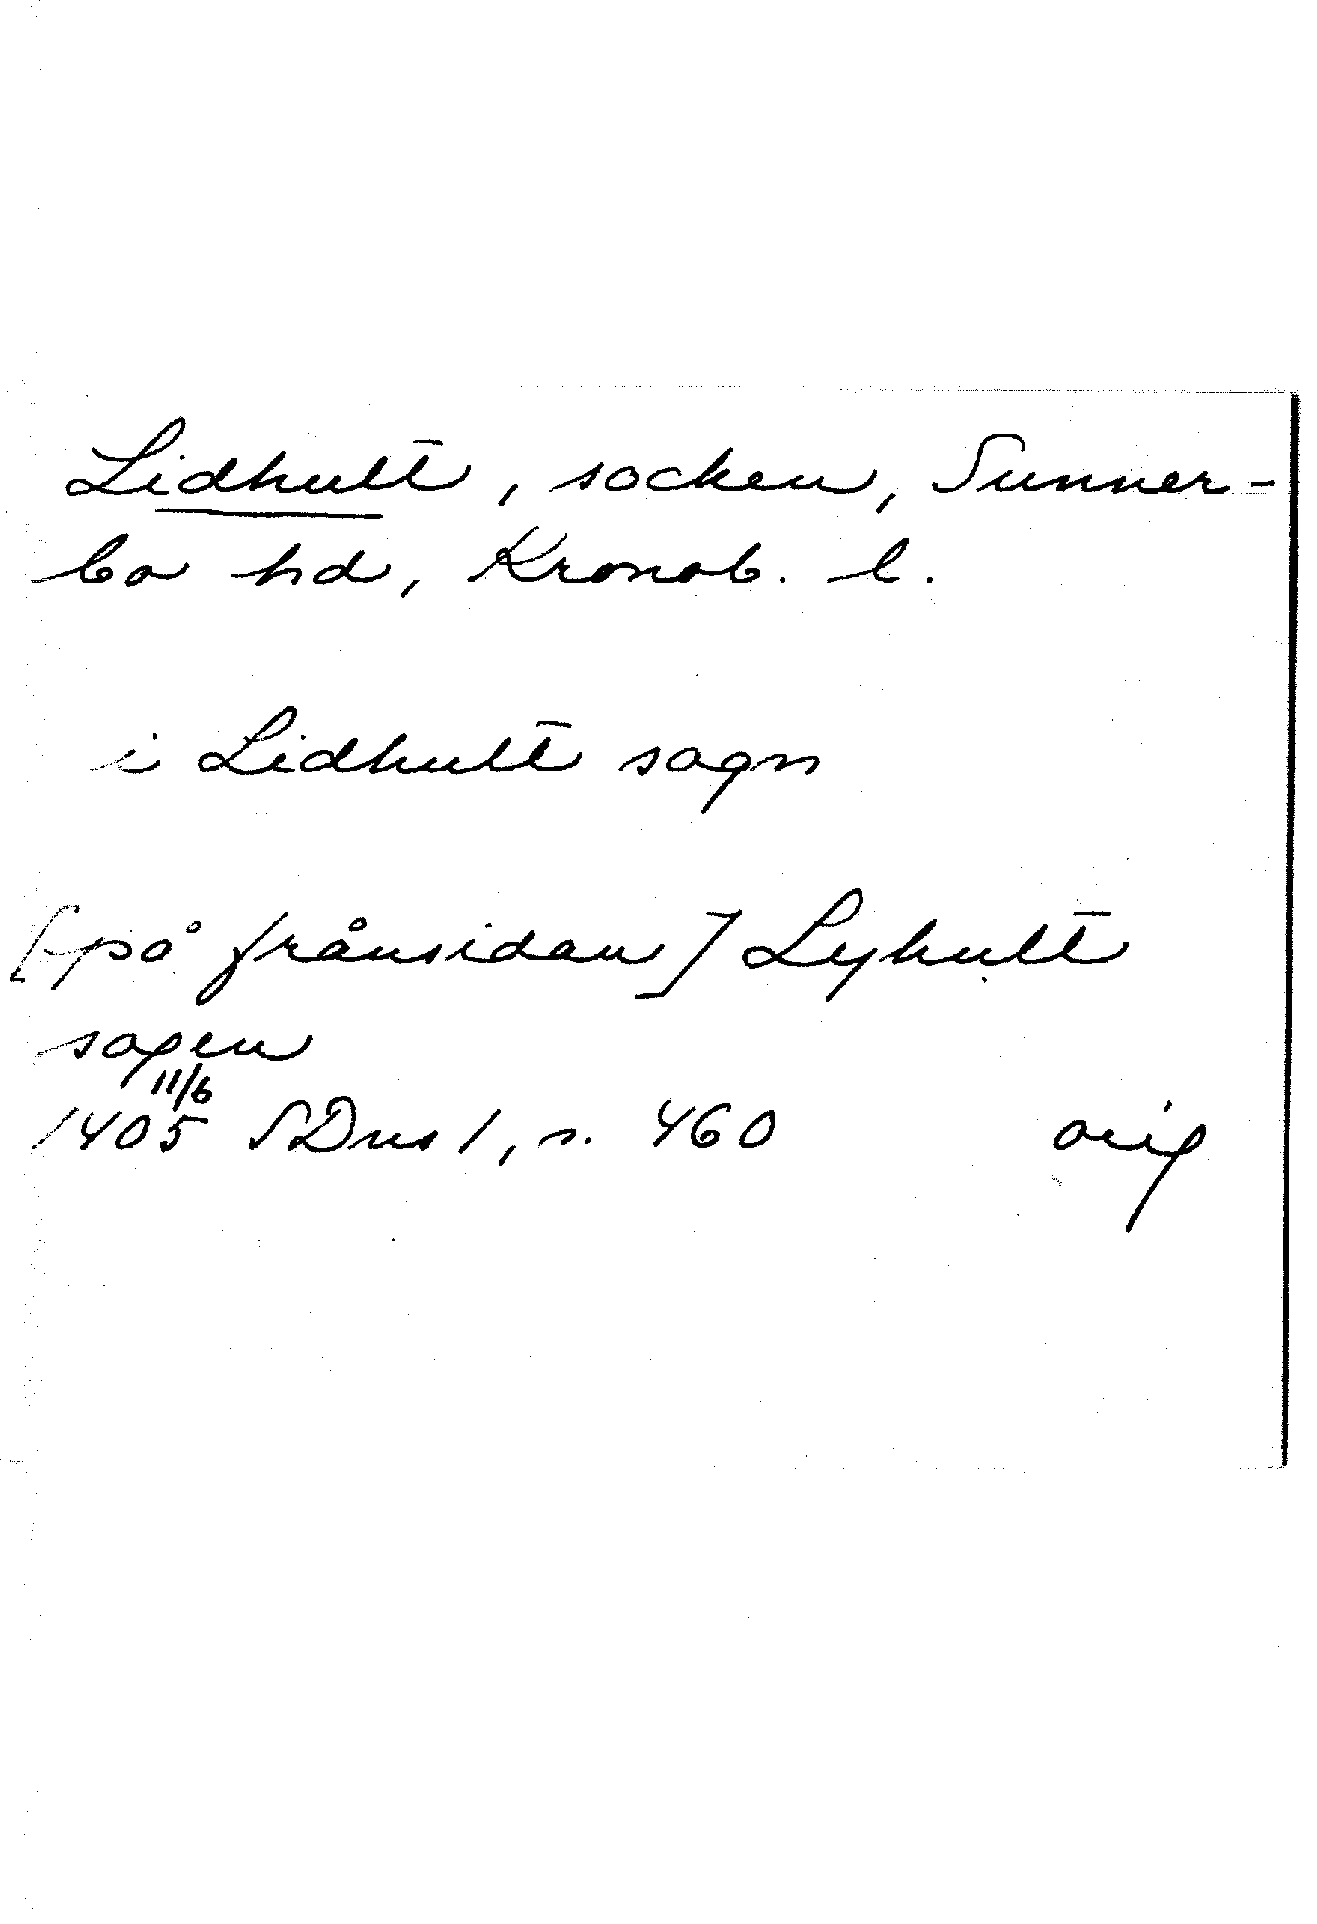 Lidhult, socken, Sunner-
bo hd, Kronob. l.
i Lidhult sogn
[på frånsidan] Lyhult
sogen
11/6
1405 SDns 1, s. 460 orig